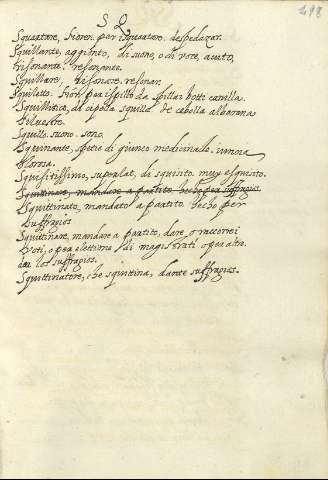 498
S Q
Squartare, fioren. per isquartare. despedazar.
Squillante, aggionto, di suono, o di voce, acuto,
risonante. resonante.
Squillare, risonare. resonar.
Squilletto. fior. per ispilletto spillar botte canilla
Squillitico, di cipolla squilla de cebolla albarana
siluestre.
Squillo. suono. sono.
Squinante, spetie di giunco medicinale.
olorosa.
Squisitissimo, superlat. di squisito. muy esquisito.
Squittinare, mandare a partito. hecho per suffragio.
Squittinato, mandato a partito. hecho per
suffragios
Squittinare, mandare a partito, dare, o raccorre i
voti, o per elettione di magistrati o per altro.
dar los suffragios.
Squittinatore, che squittina, dante suffragios.